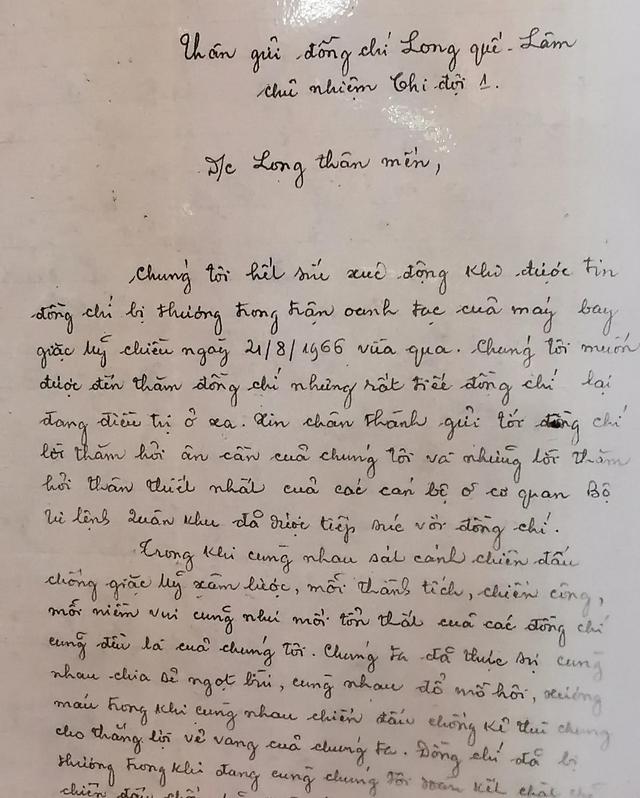 Thân gửi đồng chí Long quế - Lâm
chủ nhiệm Chi đội 1.
Đ/c Long thân mến,
Chúng tôi hết sức xúc động khi được tin
đồng chí bị thương trong trận oanh tạc của máy bay
giặc Mỹ chiều ngày 21/8/1966 vừa qua. Chúng tôi muốn
được đến thăm đồng chí nhưng rất tiếc đồng chí lại
đang điều trị ở xa. Xin chân thành gửi tới đồng chí
lời thăm hỏi ân cần của chúng tôi và những lời thăm
hỏi thân thiết nhất của các cán bộ ở cơ quan Bộ
Tư lệnh Quân khu đã được tiếp xúc với đồng chí.
Trong khi cùng nhau sát cánh chiến đấu
chống giặc Mỹ xâm lược, mỗi thành tích, chiến công,
mỗi niềm vui cũng như mỗi tổn thất của các đồng chí
cũng đều là của chúng tôi. Chúng ta đã thực sự cùng
nhau chia sẻ ngọt bùi, cùng nhau đổ mồ hôi, xương
máu trong khi cùng nhau chiến đấu chống kẻ thù chung
cho thắng lợi vẻ vang của chúng ta. Đồng chí đã bị
thương trong khi đang cùng chúng tôi đoàn kết chặt chẽ
chiến đấu